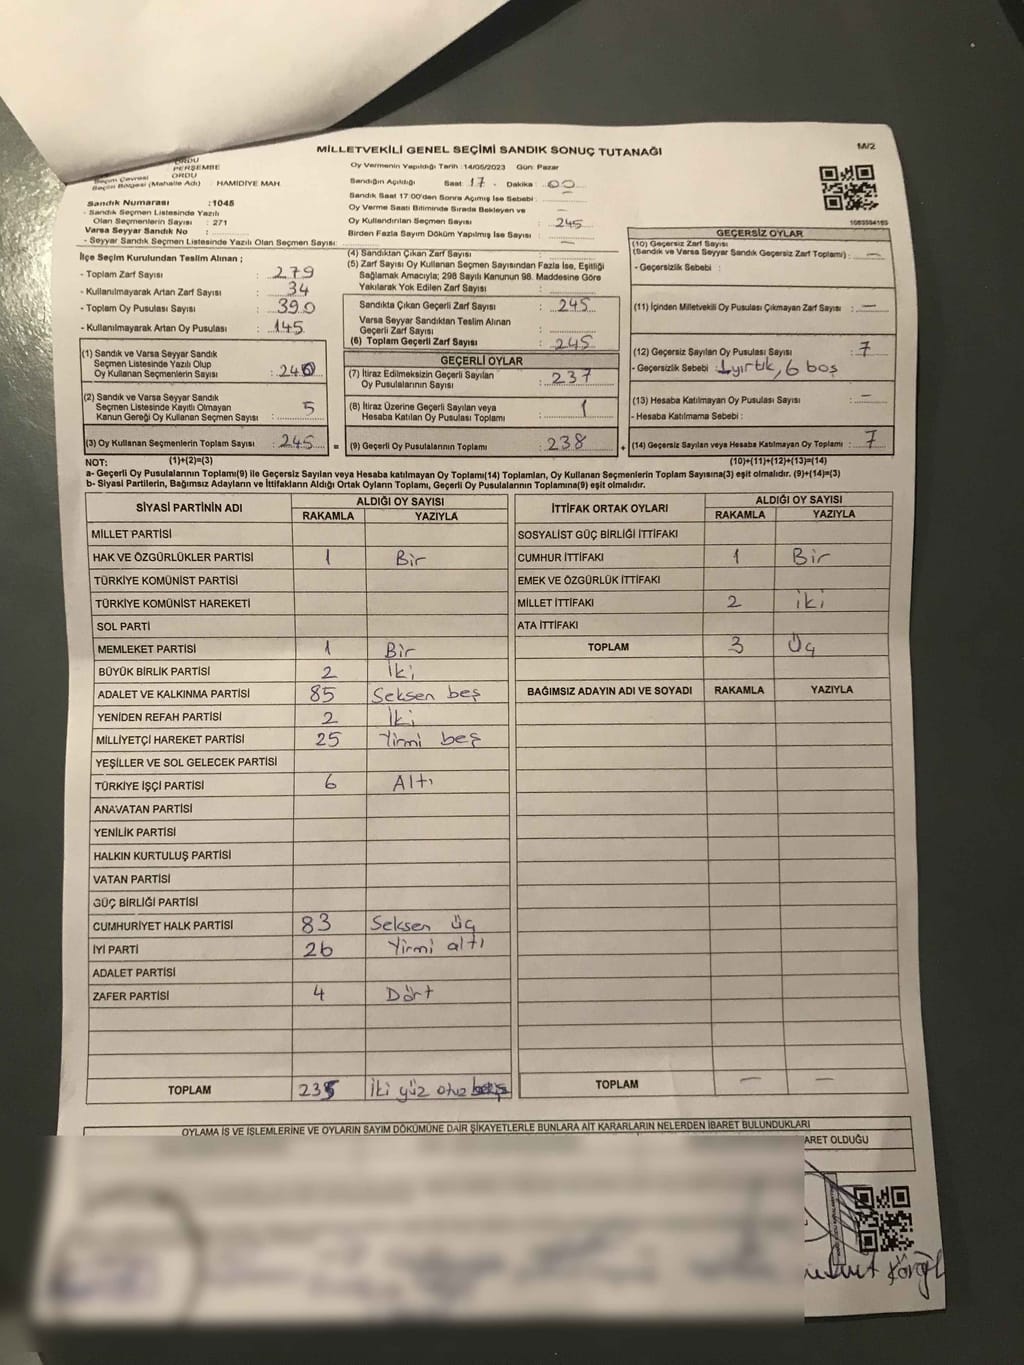 MİLLETVEKİLİ GENEL SEÇİMİ SANDIK SONUÇ TUTANAĞI
M/2
ORDU
PERŞEMBE
Seçim Çevresi ORDU
Seçim Bölgesi (Mahalle Adı) : HAMİDİYE MAH.
Sandık Numarası :1045
- Sandık Seçmen Listesinde Yazılı
Olan Seçmenlerin Sayısı : 271
Varsa Seyyar Sandık No :
- Seyyar Sandık Seçmen Listesinde Yazılı Olan Seçmen Sayısı:
Oy Vermenin Yapıldığı Tarih :14/05/2023 Gün: Pazar
Sandığın Açıldığı Saat 17 - Dakika : 00
Sandık Saat 17:00'den Sonra Açılmış İse Sebebi : —
Oy Verme Saati Bitiminde Sırada Bekleyen ve
Oy Kullandırılan Seçmen Sayısı : 245
Birden Fazla Sayım Döküm Yapılmış İse Sayısı : —
İlçe Seçim Kurulundan Teslim Alınan ;
- Toplam Zarf Sayısı : 279
- Kullanılmayarak Artan Zarf Sayısı : 34
- Toplam Oy Pusulası Sayısı : 390
- Kullanılmayarak Artan Oy Pusulası : 145
(1) Sandık ve Varsa Seyyar Sandık
Seçmen Listesinde Yazılı Olup
Oy Kullanan Seçmenlerin Sayısı : 240
(2) Sandık ve Varsa Seyyar Sandık
Seçmen Listesinde Kayıtlı Olmayan
Kanun Gereği Oy Kullanan Seçmen Sayısı : 5
(3) Oy Kullanan Seçmenlerin Toplam Sayısı : 245 =
(1)+(2)=(3)
(4) Sandıktan Çıkan Zarf Sayısı :
(5) Zarf Sayısı Oy Kullanan Seçmen Sayısından Fazla İse, Eşitliği
Sağlamak Amacıyla; 298 Sayılı Kanunun 98. Maddesine Göre
Yakılarak Yok Edilen Zarf Sayısı :
Sandıkta Çıkan Geçerli Zarf Sayısı : 245
Varsa Seyyar Sandıktan Teslim Alınan
Geçerli Zarf Sayısı :
(6) Toplam Geçerli Zarf Sayısı : 245
GEÇERLİ OYLAR
(7) İtiraz Edilmeksizin Geçerli Sayılan
Oy Pusulalarının Sayısı : 237
(8) İtiraz Üzerine Geçerli Sayılan veya
Hesaba Katılan Oy Pusulası Toplamı : 1
(9) Geçerli Oy Pusulalarının Toplamı : 238 +
GEÇERSİZ OYLAR
(10) Geçersiz Zarf Sayısı
(Sandık ve Varsa Seyyar Sandık Geçersiz Zarf Toplamı) : —
- Geçersizlik Sebebi :
(11) İçinden Milletvekili Oy Pusulası Çıkmayan Zarf Sayısı : —
(12) Geçersiz Sayılan Oy Pusulası Sayısı : 7
- Geçersizlik Sebebi : 1 yırtık, 6 boş
(13) Hesaba Katılmayan Oy Pusulası Sayısı : —
- Hesaba Katılmama Sebebi :
(14) Geçersiz Sayılan veya Hesaba Katılmayan Oy Toplamı : 7
(10)+(11)+(12)+(13)=(14)
NOT:
a- Geçerli Oy Pusulalarının Toplamı(9) ile Geçersiz Sayılan veya Hesaba katılmayan Oy Toplamı(14) Toplamları, Oy Kullanan Seçmenlerin Toplam Sayısına(3) eşit olmalıdır. (9)+(14)=(3)
b- Siyasi Partilerin, Bağımsız Adayların ve İttifakların Aldığı Ortak Oyların Toplamı, Geçerli Oy Pusulalarının Toplamına(9) eşit olmalıdır.
SİYASİ PARTİNİN ADI ALDIĞI OY SAYISI
RAKAMLA YAZIYLA
MİLLET PARTİSİ
HAK VE ÖZGÜRLÜKLER PARTİSİ 1 Bir
TÜRKİYE KOMÜNİST PARTİSİ
TÜRKİYE KOMÜNİST HAREKETİ
SOL PARTİ
MEMLEKET PARTİSİ 1 Bir
BÜYÜK BİRLİK PARTİSİ 2 İki
ADALET VE KALKINMA PARTİSİ 85 Seksen beş
YENİDEN REFAH PARTİSİ 2 İki
MİLLİYETÇİ HAREKET PARTİSİ 25 Yirmi beş
YEŞİLLER VE SOL GELECEK PARTİSİ
TÜRKİYE İŞÇİ PARTİSİ 6 Altı
ANAVATAN PARTİSİ
YENİLİK PARTİSİ
HALKIN KURTULUŞ PARTİSİ
VATAN PARTİSİ
GÜÇ BİRLİĞİ PARTİSİ
CUMHURİYET HALK PARTİSİ 83 Seksen üç
İYİ PARTİ 26 Yirmi altı
ADALET PARTİSİ
ZAFER PARTİSİ 4 Dört
TOPLAM 235 İki yüz otuz beş
İTTİFAK ORTAK OYLARI ALDIĞI OY SAYISI
RAKAMLA YAZIYLA
SOSYALİST GÜÇ BİRLİĞİ İTTİFAKI
CUMHUR İTTİFAKI 1 Bir
EMEK VE ÖZGÜRLÜK İTTİFAKI
MİLLET İTTİFAKI 2 iki
ATA İTTİFAKI
TOPLAM 3 Üç
BAĞIMSIZ ADAYIN ADI VE SOYADI RAKAMLA YAZIYLA
TOPLAM — —
OYLAMA İŞ VE İŞLEMLERİNE VE OYLARIN SAYIM DÖKÜMÜNE DAİR ŞİKAYETLERLE BUNLARA AİT KARARLARIN NELERDEN İBARET BULUNDUKLARI
ARET OLDUĞU